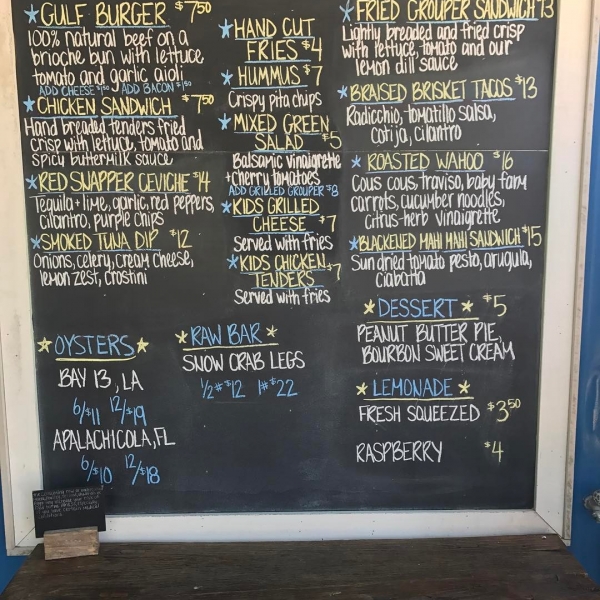 *GULF BURGER $7.50
100% natural beef on a
brioche bun with lettuce
tomato and garlic aioli
ADD CHEESE $1.50 ADD BACON $1.50
*CHICKEN SANDWICH $7.50
Hand breaded tenders fried
crisp with lettuce, tomato and
spicy buttermilk sauce
*RED SNAPPER CEVICHE $14
Tequila + lime, garlic, red peppers,
cilantro, purple chips
*SMOKED TUNA DIP $12
Onions, celery, cream cheese,
lemon zest, crostini
*OYSTERS*
BAY 13, LA
6/$11 12/$19
APALACHICOLA, FL
6/$10 12/$18
*HAND CUT
FRIES $4
*HUMMUS $7
Crispy pita chips
*MIXED GREEN
SALAD $5
Balsamic vinaigrette
+ cherry tomatoes
ADD GRILLED GROUPER $8
*KIDS GRILLED
CHEESE $7
Served with fries
*KIDS CHICKEN
TENDERS $7
Served with fries
*RAW BAR*
SNOW CRAB LEGS
1/2# $12 1# $22
*FRIED GROUPER SANDWICH $13
Lightly breaded and fried crisp
with lettuce, tomato and our
lemon dill sauce
*BRAISED BRISKET TACOS $13
Radicchio, tomatillo salsa,
cotija, cilantro
*ROASTED WAHOO $16
Cous cous, traviso, baby farm
carrots, cucumber noodles,
citrus-herb vinaigrette
*BLACKENED MAHI MAHI SANDWICH $15
Sun dried tomato pesto, arugula,
ciabatta
*DESSERT* $5
PEANUT BUTTER PIE,
BOURBON SWEET CREAM
*LEMONADE*
FRESH SQUEEZED $3.50
RASPBERRY $4